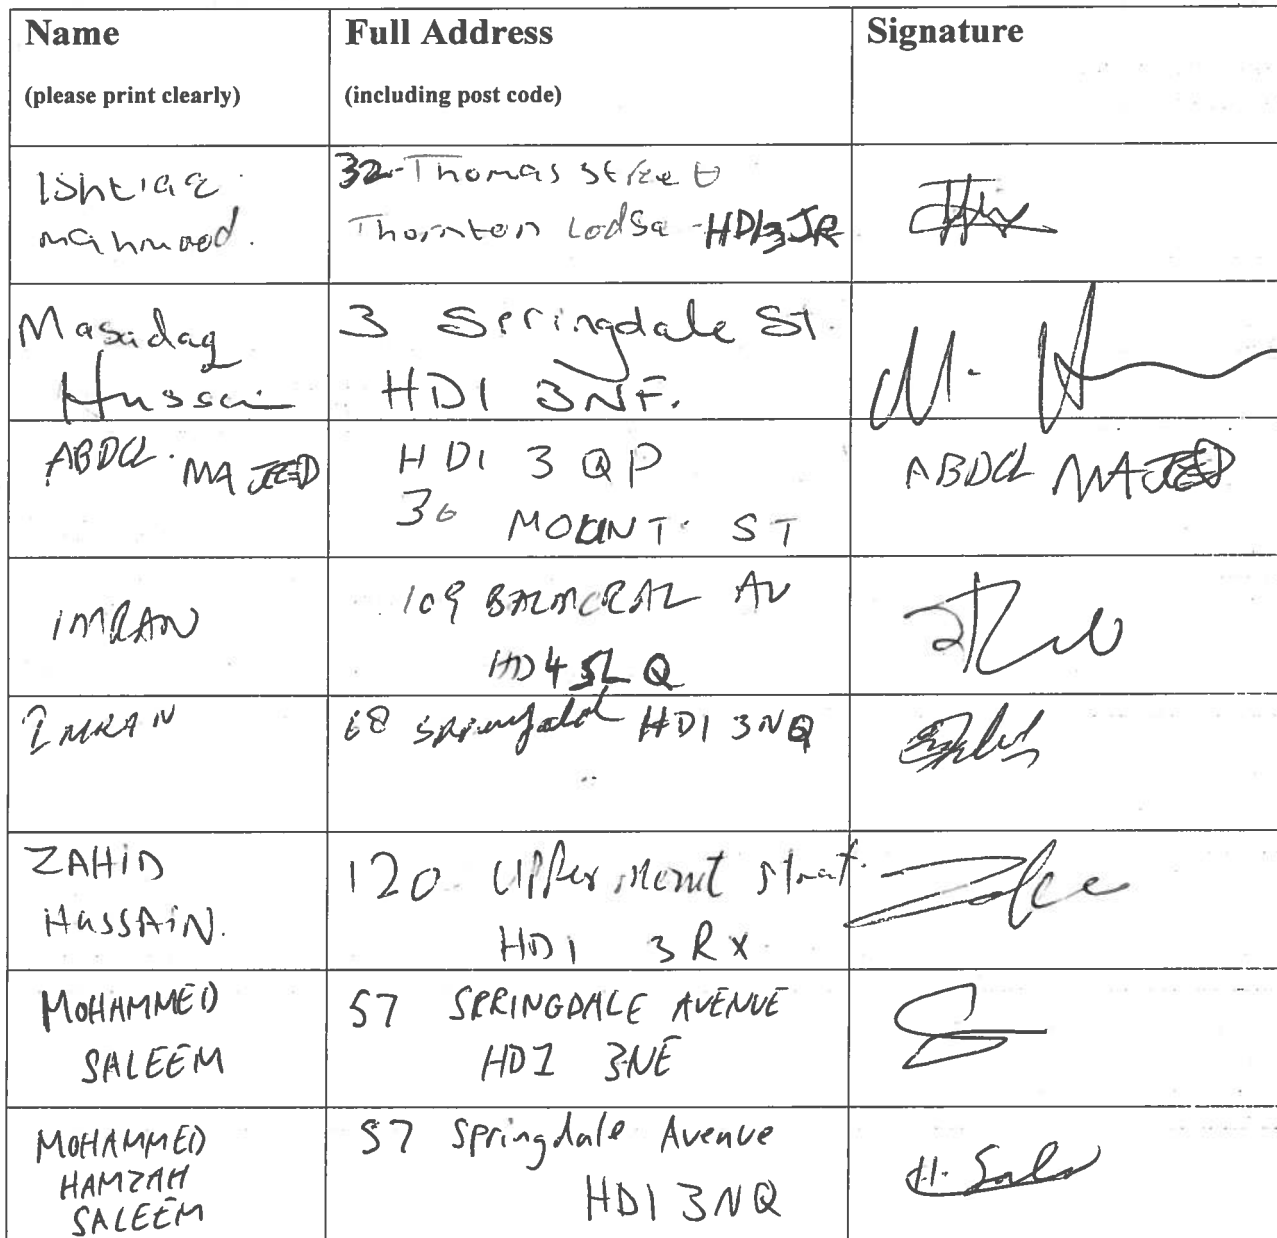 Name
(please print clearly)
Full Address
(including post code)
Signature
Ishtiaq
mahmood.
32-Thomas street
Thornton Lodge - HD13JR
Masadaq
Hussain
3 Springdale St.
HD1 3NF.
M. H
ABDUL. MAJEED
HD1 3QP
30 MOUNT ST
ABDUL MAJEED
IMRAN
109 BALMORAL AV
HD4 5LQ
IMRAN
68 HD1 3NQ
ZAHID
HUSSAIN.
120 Upper Mount Street.
HD1 3RX
MOHAMMED
SALEEM
57 SPRINGDALE AVENUE
HD1 3NE
MOHAMMED
HAMZAH
SALEEM
57 Springdale Avenue
HD1 3NQ